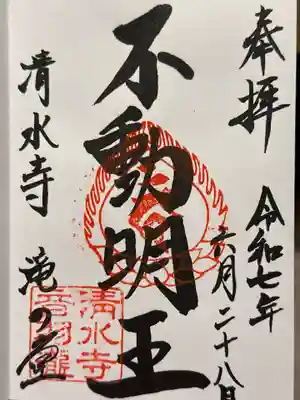 奉拝
令和七年
六月二十八日
不動明王
清水寺 滝の堂
清水寺
音羽瀧